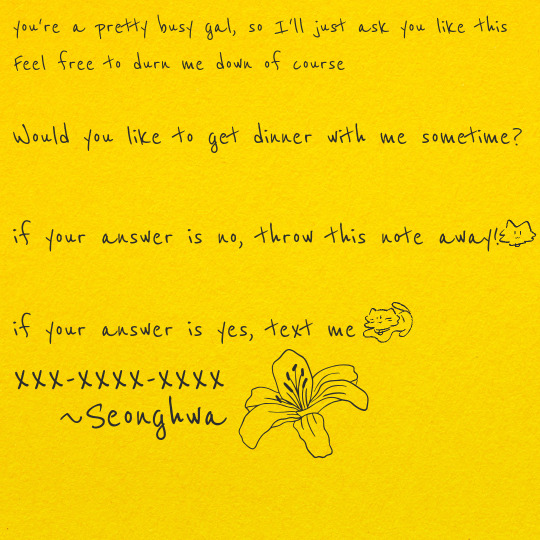 you're a pretty busy gal, so I'll just ask you like this
Feel free to durn me down of course
Would you like to get dinner with me sometime?
if your answer is no, throw this note away!
if your answer is yes, text me
xxx-xxxx-xxxx
~Seonghwa